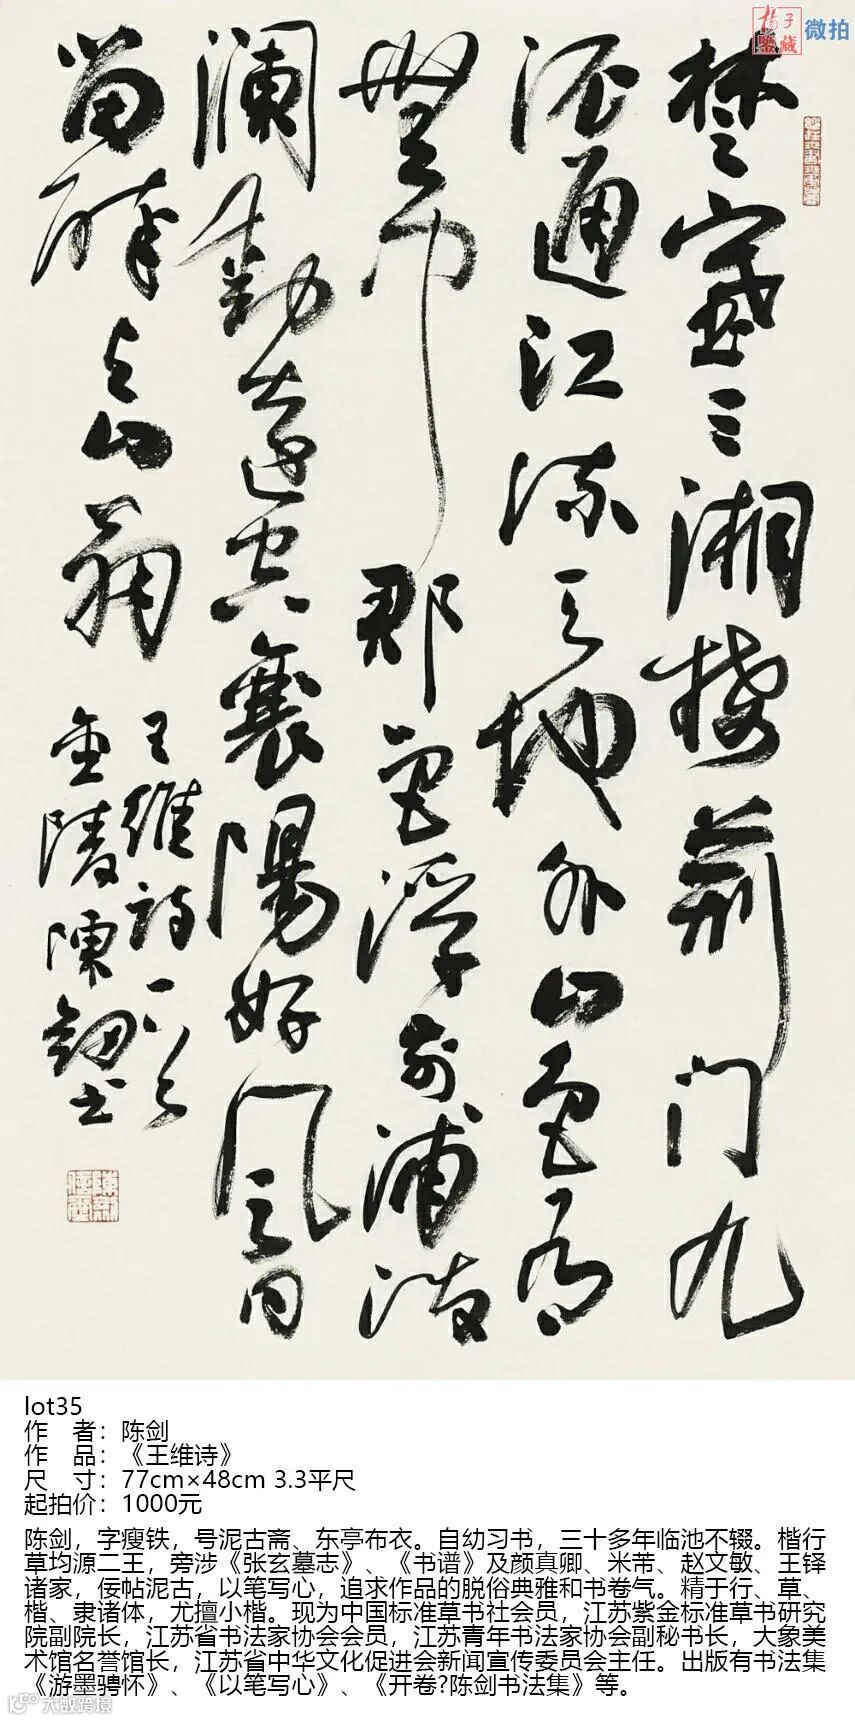 揚子
鑒藏
微拍
楚塞三湘接荆门九
派通江流天地外山色有
無中郡邑浮前浦波
瀾動遠空襄陽好風日
留醉与山翁
王維詩一首
金陵陳劍書
lot35
作　者：陈剑
作　品：《王维诗》
尺　寸：77cm×48cm 3.3平尺
起拍价：1000元
陈剑，字瘦铁，号泥古斋、东亭布衣。自幼习书，三十多年临池不辍。楷行
草均源二王，旁涉《张玄墓志》、《书谱》及颜真卿、米芾、赵文敏、王铎
诸家，佞帖泥古，以笔写心，追求作品的脱俗典雅和书卷气。精于行、草、
楷、隶诸体，尤擅小楷。现为中国标准草书社会员，江苏紫金标准草书研究
院副院长，江苏省书法家协会会员，江苏青年书法家协会副秘书长，大象美
术馆名誉馆长，江苏省中华文化促进会新闻宣传委员会主任。出版有书法集
《游墨骋怀》、《以笔写心》、《开卷?陈剑书法集》等。
大数跨境